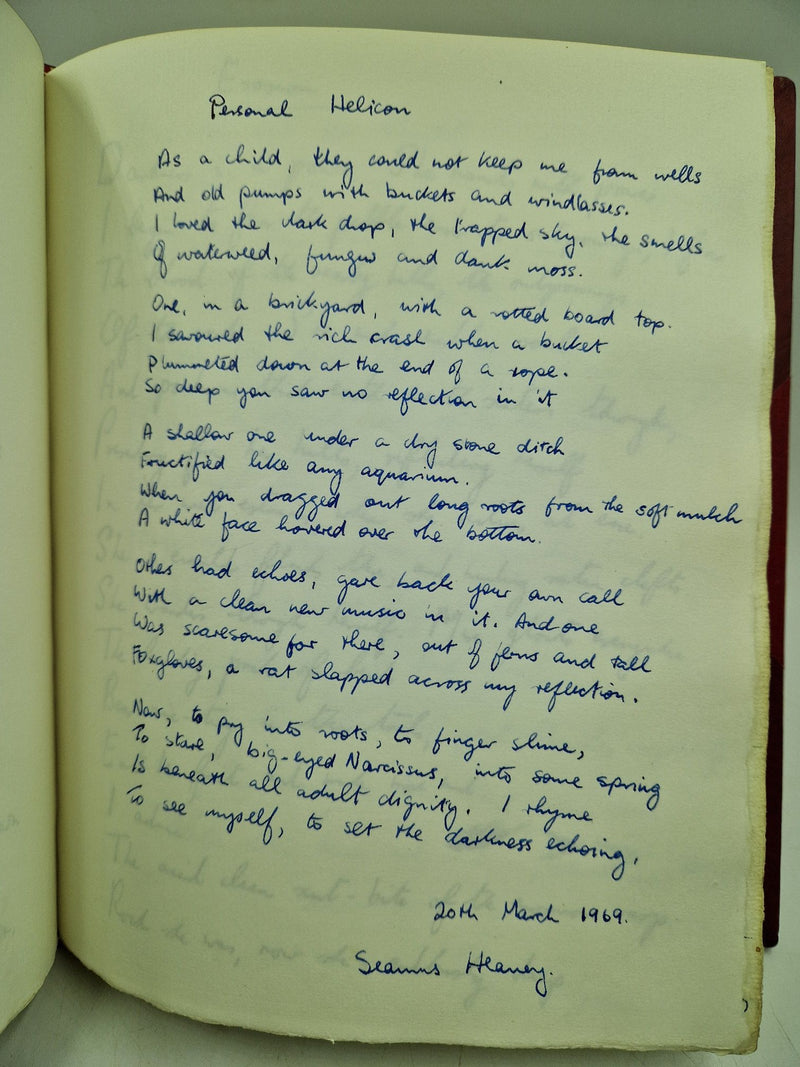 Personal Helicon
As a child, they could not keep me from wells
And old pumps with buckets and windlasses.
I loved the dark drop, the trapped sky, the smells
Of waterweed, fungus and dank moss.
One, in a brickyard, with a rotted board top.
I savoured the rich crash when a bucket
Plummeted down at the end of a rope.
So deep you saw no reflection in it
A shallow one under a dry stone ditch
Fructified like any aquarium.
When you dragged out long roots from the soft mulch
A white face hovered over the bottom.
Others had echoes, gave back your own call
With a clean new music in it. And one
Was scaresome for there, out of ferns and tall
Foxgloves, a rat slapped across my reflection.
Now, to pry into roots, to finger slime,
To stare, big-eyed Narcissus, into some spring
Is beneath all adult dignity. I rhyme
To see myself, to set the darkness echoing.
20th March 1969.
Seamus Heaney.